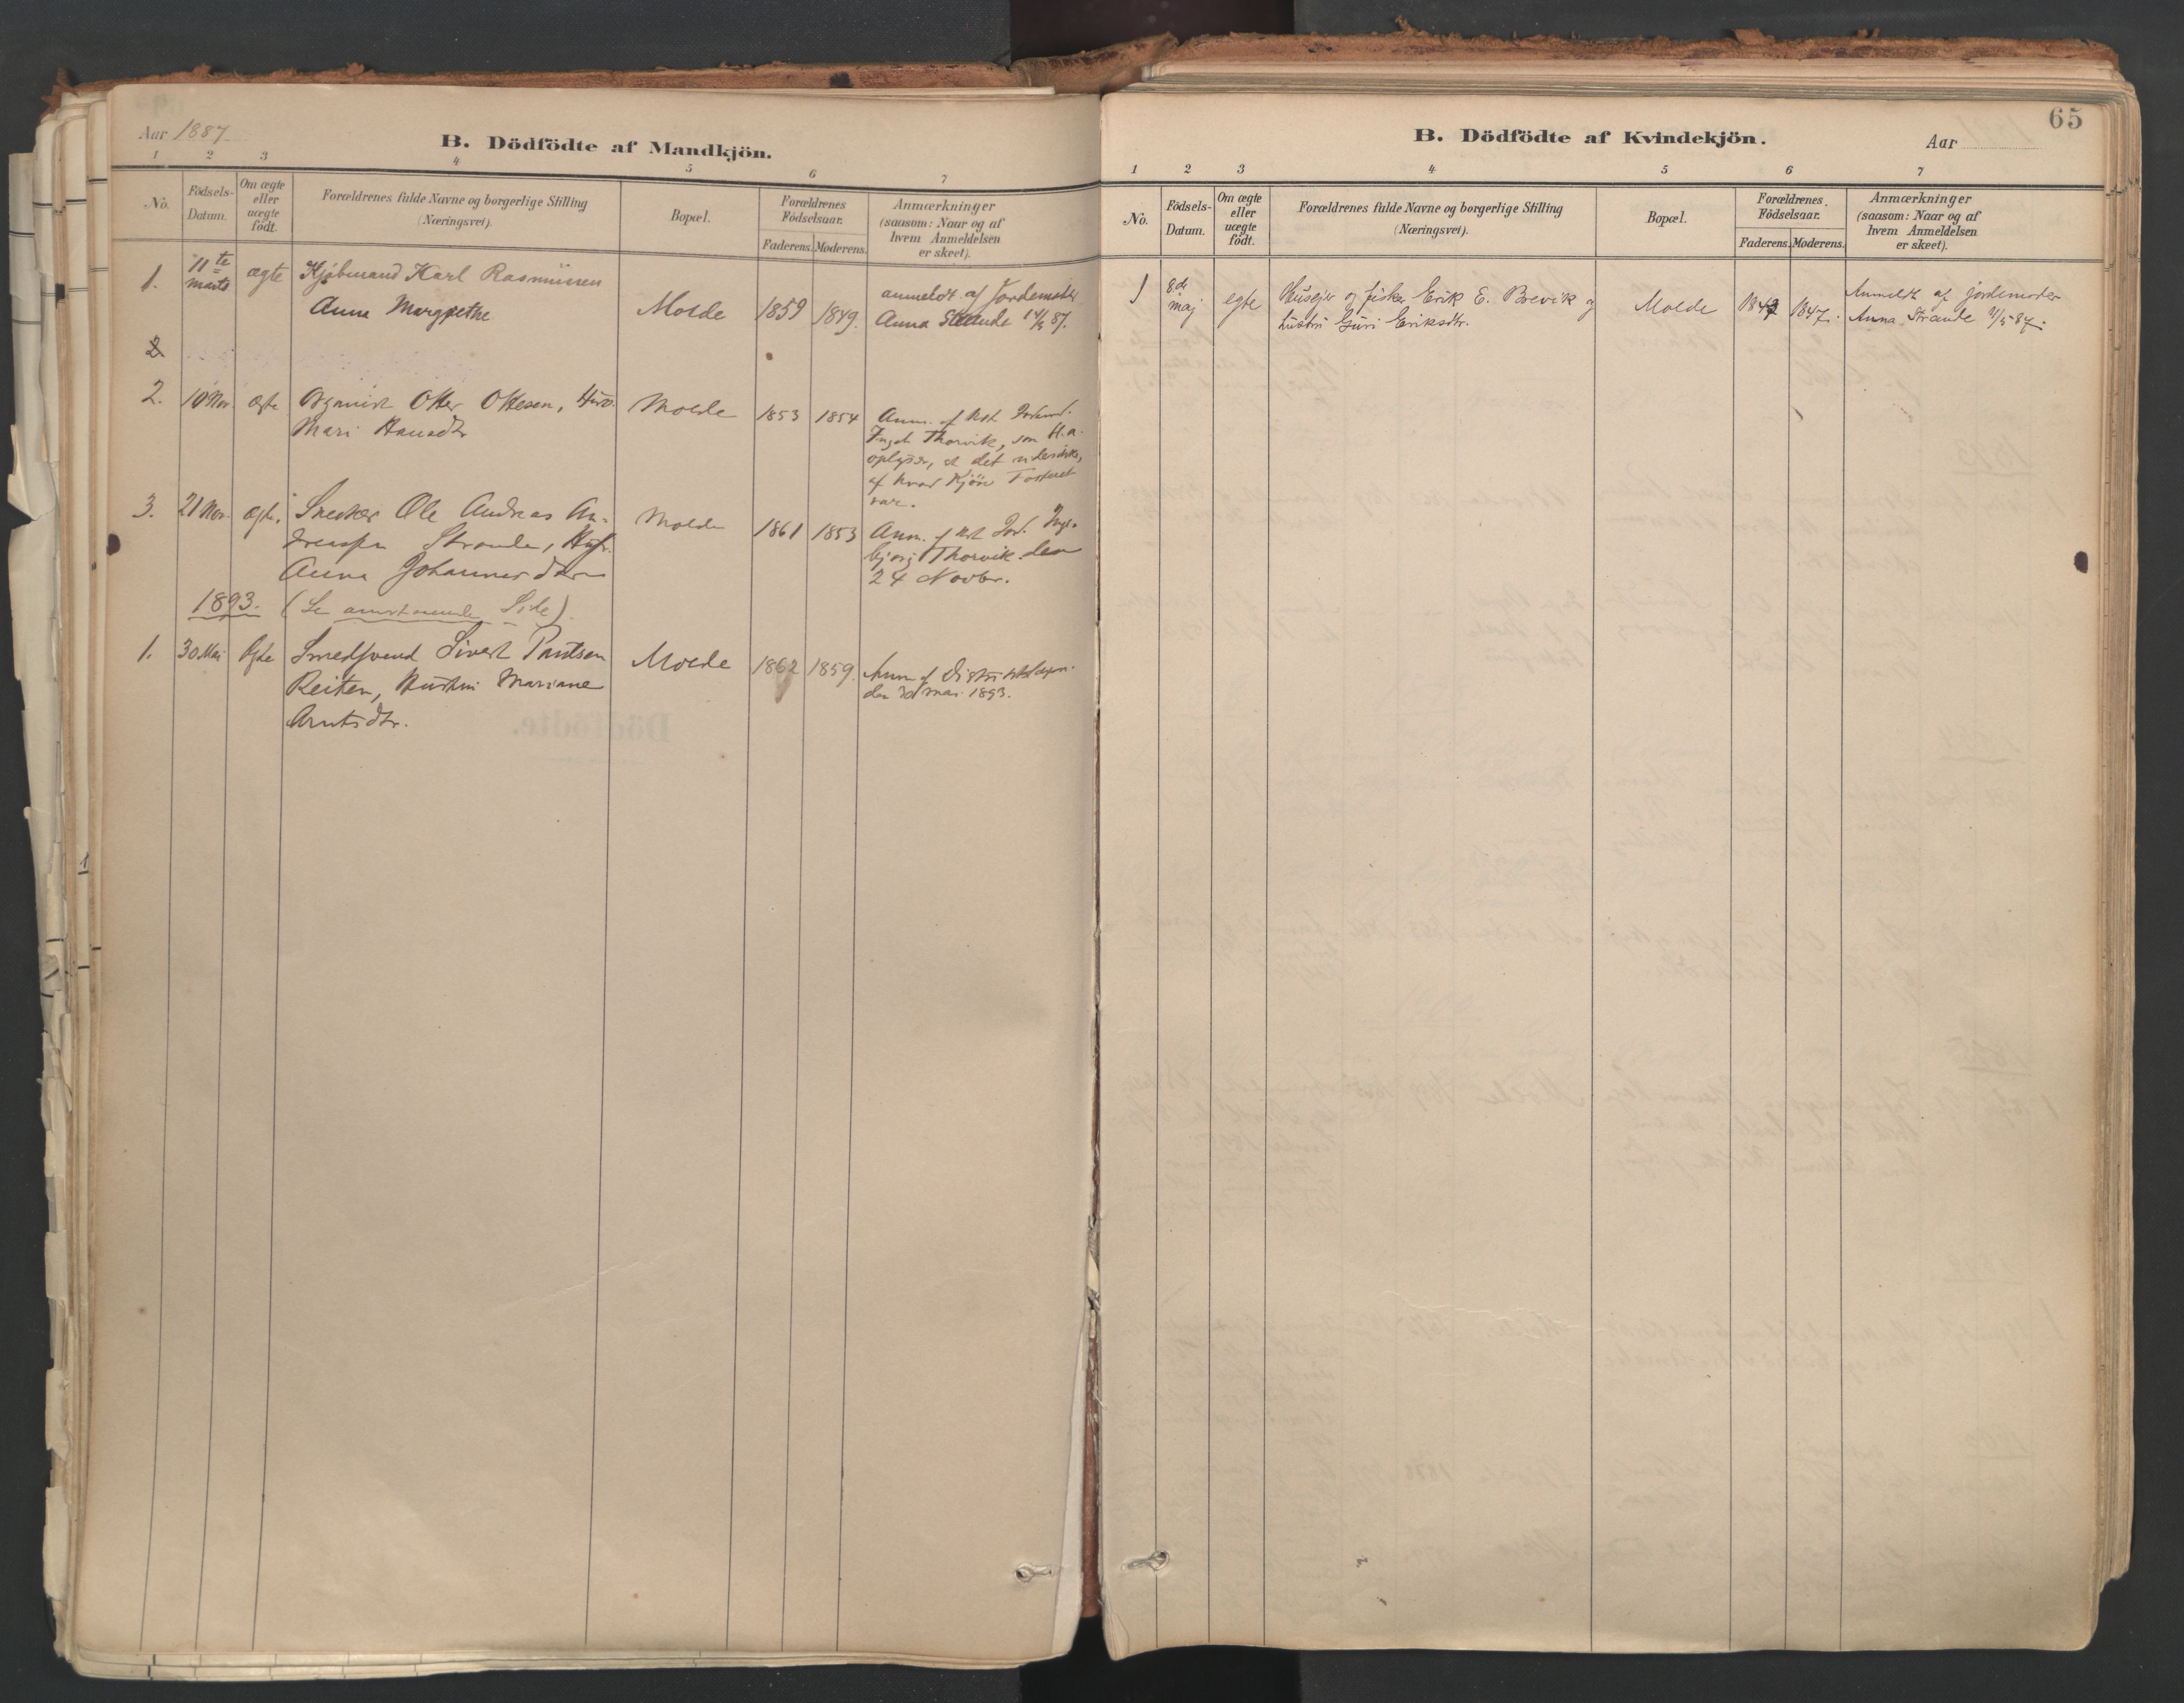 Aar 1887.
B. Dödfödte af Mandkjön.
1 2 3 4 5 6 7
No.
Födsels-Datum.
Om ægte eller uægte födt.
Forældrenes fulde Navne og borgerlige Stilling
(Næringsvei).
Bopæl.
Forældrenes Födselsaar.
Faderens. Moderens.
Anmærkninger
(saasom: Naar og af
hvem Anmeldelsen
er skeet).
1. 11te marts ægte Kjøbmand Karl Rasmussen
Anne Margrethe Molde 1859 1849. anmeldt af Jordemoder
Anna Strande 14/3 87.
2
2. 10 Nov. ægte Organist Otter Ottesen, Hust.
Mari Hansdtr Molde 1853 1854 Anm. af Kst. Jordmd.
Ingeb Thorvik, som
oplyser, at det
af hvad Kjön Fosteret
var.
3. 21 Nov. ægte. Snedker Ole Andreas An-
dreassen Strande, Hust.
Anna Johannesdtr Molde 1861 1853 Anm. af Kst Jord. Inge-
bjørg Thorvik den
24 Novbr.
1893. (Se anstaaende Side).
1. 30 Mai Ægte Smedsvend Sivert Paulsen
Reiten, Hustru Mariane
Arntsdtr. Molde 1862 1859. Anm af Distriktslægen
den 30 mai 1893.
65
B. Dödfödte af Kvindekjön.
Aar
1 2 3 4 5 6 7
No.
Födsels-Datum.
Om ægte eller uægte födt.
Forældrenes fulde Navne og borgerlige Stilling
(Næringsvei).
Bopæl.
Forældrenes Födselsaar.
Faderens. Moderens.
Anmærkninger
(saasom: Naar og af
hvem Anmeldelsen
er skeet).
1 8de maj egte Husejer og fisker Erik E. Brevik og
hustru Guri Eriksdtr. Molde 1847. Anmeldt af jordemoder
Anna Strande 11/5 87.